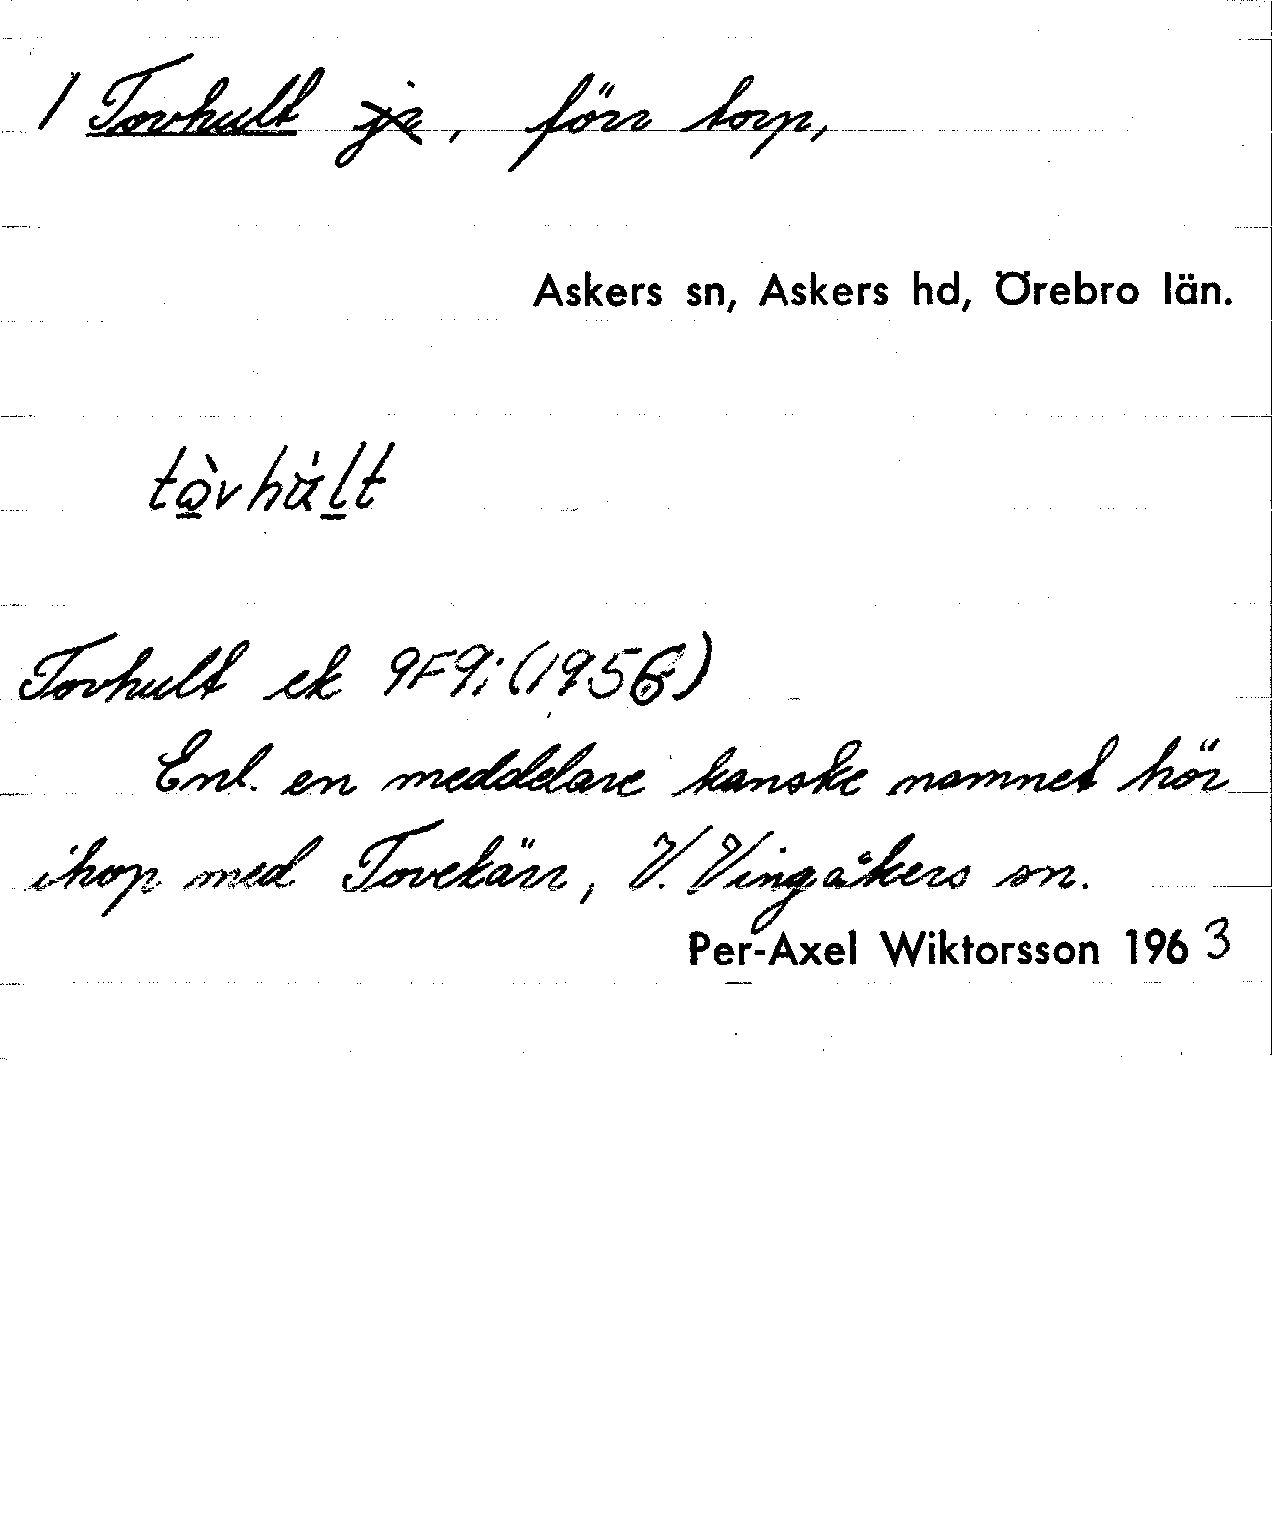 1 Tovhult ja, förr torp,
Askers sn, Askers hd, Örebro län.
Tovhult ek 9F9i (1956)
Enl. en meddelare kanske namnet hör
ihop med Tovekärr, V. Vingåkers sn.
Per-Axel Wiktorsson 1963